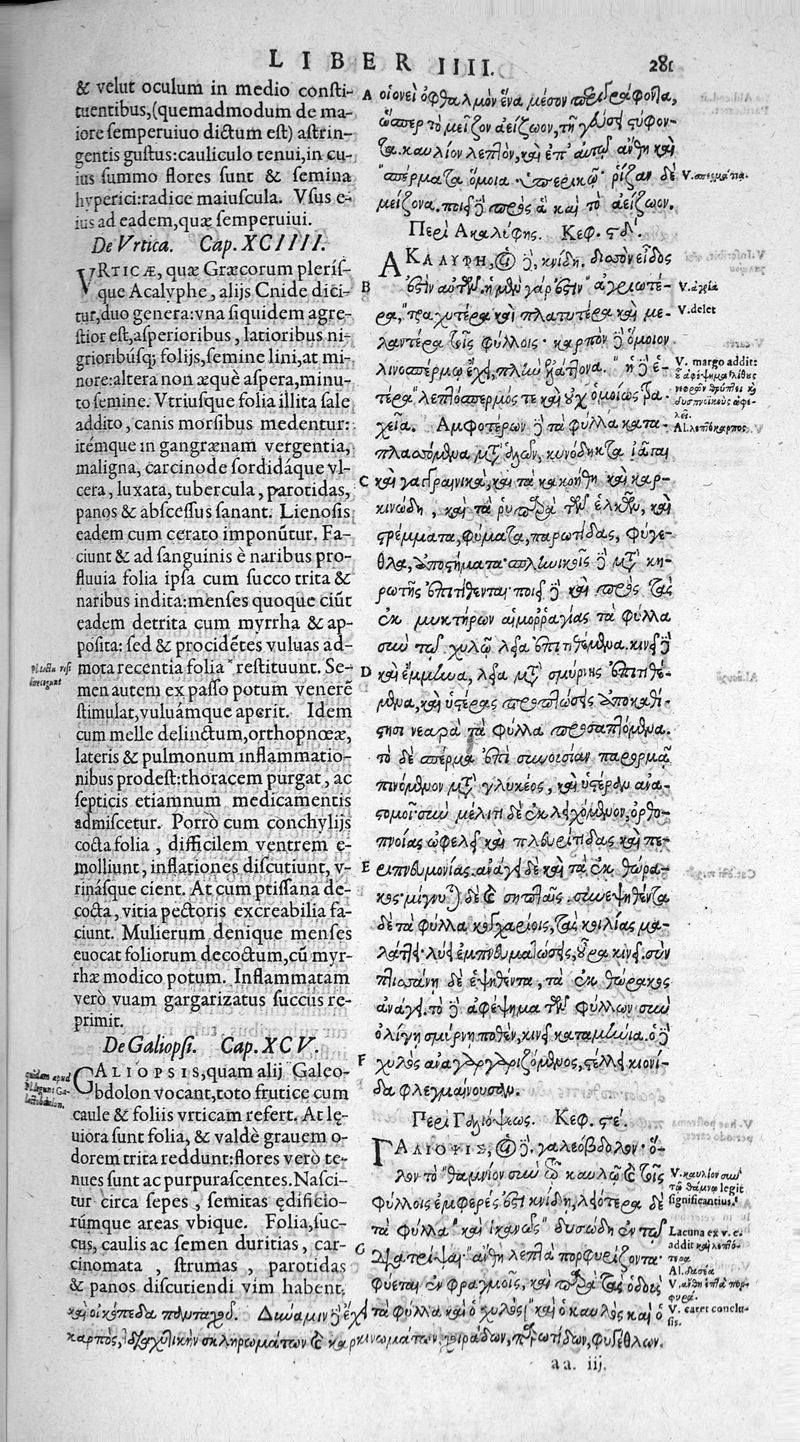 LIBER IIII. 281
& velut oculum in medio consti-
tuentibus,(quemadmodum de ma-
iore semperuiuo dictum est) astrin-
gentis gustus:cauliculo tenui,in cu-
ius summo flores sunt & semina
hyperici:radice maiuscula. Vsus e-
ius ad eadem,quæ semperuiui.
De Vrtica. Cap. XCIIII.
VRTICÆ, quæ Græcorum pleris-
que Acalyphe, alijs Cnide dici-
tur,duo genera:vna siquidem agre-
stior est,asperioribus, latioribus ni-
grioribúsq; folijs,semine lini,at mi-
nore:altera non æquè aspera,minu-
to semine. Vtriusque folia illita sale
addito, canis morsibus medentur:
itémque in gangrænam vergentia,
maligna, carcinode sordidáque vl-
cera, luxata, tubercula, parotidas,
panos & abscessus sanant. Lienosis
eadem cum cerato imponútur. Fa-
ciunt & ad sanguinis è naribus pro-
fluuia folia ipsa cum succo trita &
naribus indita:menses quoque ciút
eadem detrita cum myrrha & ap-
posita: sed & procidétes vuluas ad-
mota recentia folia restituunt. Se-
men autem ex passo potum veneré
stimulat,vuluámque aperit. Idem
cum melle delinctum,orthopnœæ,
lateris & pulmonum inflammatio-
nibus prodest:thoracem purgat, ac
septicis etiamnum medicamentis
admiscetur. Porrò cum conchylijs
cocta folia, difficilem ventrem e-
molliunt, inflationes discutiunt, v-
rinásque cient. At cum ptissana de-
cocta, vitia pectoris excreabilia fa-
ciunt. Mulierum denique menses
euocat foliorum decoctum,cú myr-
rhæ modico potum. Inflammatam
verò vuam gargarizatus succus re-
primit.
De Galiopsi. Cap. XCV.
GALIOPSIS,quam alij Galeo-
bdolon vocant,toto frutice cum
caule & foliis vrticam refert. At lę-
uiora sunt folia, & valdè grauem o-
dorem trita reddunt:flores verò te-
nues sunt ac purpurascentes. Nasci-
tur circa sepes, semitas ędificio-
rúmque areas vbique. Folia,suc-
cus, caulis ac semen duritias, car-
cinomata, strumas, parotidas
& panos discutiendi vim habent.
A οἱονεὶ ὀφθαλμὸν ἕνα μέσον περιγράφοντα,
ὥσπερ τὸ μεῖζον ἀείζωον, τῇ γεύσει στύφον-
τα. καυλίον λεπτὸν, καὶ ἐπ' αὐτοῦ ἄνθη καὶ
σπέρματα ὅμοια ὑπερικῷ· ῥίζαν δὲ
μείζονα. ποιεῖ δὲ πρὸς ἃ καὶ τὸ ἀείζωον.
Περὶ Ἀκαλύφης. Κεφ. ϟδʹ.
ΑΚΑΛΥΦΗ, οἱ δὲ, κνίδη. δισσὸν εἶδος
B ἐστὶν αὐτῆς. ἡ μὲν γάρ ἐστιν ἀγριωτέ-
ρα, τραχυτέρα καὶ πλατυτέρα καὶ με-
λαντέρα τοῖς φύλλοις· καρπὸν δὲ ὅμοιον
λινοσπέρμῳ ἔχει, πλὴν ἐλάττονα. ἡ δὲ ἑ-
τέρα λεπτόσπερμός τε καὶ οὐχ ὁμοίως τρα-
χεῖα. Ἀμφοτέρων δὲ τὰ φύλλα κατα-
πλασσόμενα μετὰ ἁλῶν, κυνόδηκτα ἰᾶται
C καὶ γαγγραινικὰ, καὶ τὰ κακοήθη καὶ καρ-
κινώδη, καὶ τὰ ῥυπαρὰ τῶν ἑλκῶν, καὶ
στρέμματα, φύματα, παρωτίδας, φύγε-
θλα, ἀποστήματα· σπληνικοῖς δὲ μετὰ κη-
ρωτῆς ἐπιτίθενται· ποιεῖ δὲ καὶ πρὸς τὰς
ἐκ μυκτήρων αἱμορραγίας τὰ φύλλα
σὺν τῷ χυλῷ λεῖα ἐπιτιθέμενα. κινεῖ δὲ
D καὶ ἔμμηνα, λεῖα μετὰ σμύρνης ἐπιτιθέ-
μενα, καὶ ὑστέρας προπτώσεις ἀποκαθί-
στησι νεαρὰ τὰ φύλλα προσαπτόμενα.
τὸ δὲ σπέρμα ἐπὶ συνουσίαν παρορμᾷ
πινόμενον μετὰ γλυκέος, καὶ ὑστέραν ἀνα-
στομοῖ· σὺν μέλιτι δὲ ἐκλειχόμενον, ὀρθο-
πνοίας ὠφελεῖ καὶ πλευρίτιδας καὶ πε-
E ριπνευμονίας. ἀνάγει δὲ καὶ τὰ ἐκ θώρα-
κος· μίγνυται δὲ καὶ σηπταῖς. συνεψηθέντα
δὲ τὰ φύλλα κογχαρίοις, τὰς κοιλίας μα-
λάττει· λύει ἐμπνευματώσεις, οὖρα κινεῖ. σὺν
πτισάνῃ δὲ ἑψηθέντα, τὰ ἐκ θώρακος
ἀνάγει. τὸ δὲ ἀφέψημα τῶν φύλλων σὺν
ὀλίγῃ σμύρνῃ ποθὲν, κινεῖ καταμήνια. ὁ δὲ
F χυλὸς ἀναγαργαριζόμενος, στέλλει κιονί-
δα φλεγμαίνουσαν.
Περὶ Γαλιόψεως. Κεφ. ϟεʹ.
ΓΑΛΙΟΨΙΣ, οἱ δὲ, γαλεόβδολον· ὅ-
λον τὸ θαμνίον σὺν τῷ καυλῷ καὶ τοῖς
φύλλοις ἐμφερές ἐστι κνίδῃ, λειότερα δὲ
τὰ φύλλα καὶ ἱκανῶς δυσώδη ἐν τῷ
G διατρίψαι· ἄνθη λεπτὰ πορφυρίζοντα·
φύεται ἐν φραγμοῖς, καὶ παρὰ τὰς ὁδοὺς
καὶ οἰκόπεδα πανταχοῦ. Δύναμιν δὲ ἔχει τὰ φύλλα καὶ ὁ χυλὸς καὶ ὁ καυλὸς καὶ ὁ
καρπὸς, διαχυτικὴν σκληρωμάτων καὶ καρκινωμάτων, χοιράδων, παρωτίδων, φυγέθλων.
V. σπερμάτια.
V. ἀγρία
V. delet
V. margo addit:
Al. λεπτόκαρπος
V. καυλίον σὺν
τῷ θάμνῳ legit
significantius.
Lacuna ex v. c.
addit καὶ λεπτό-
τερα
Al. δασέα
V. caret conclu-
sis.
aa. iij.